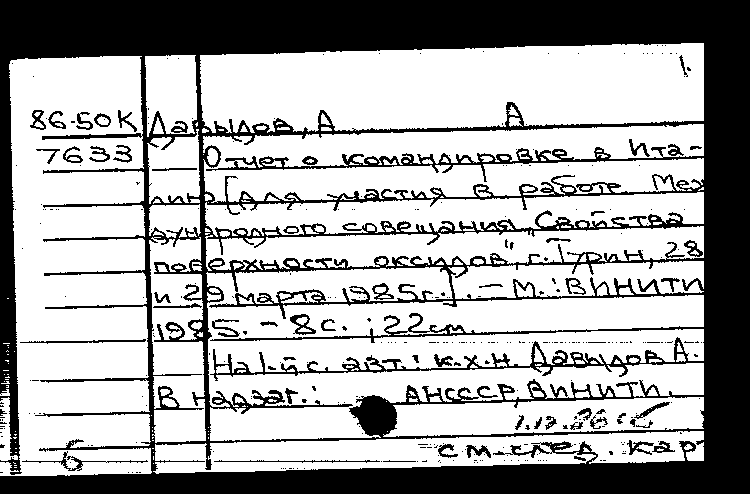 1.
86-50К Давыдов, А А
7633 Отчет о командировке в Ита-
лию [для участия в работе Меж
дународного совещания „Свойства
поверхности оксидов", г. Турин, 28
и 29 марта 1985г.]. - М.: ВИНИТИ
1985. - 8с. ; 22см.
На 1-й с. авт.: к.х.н. Давыдов А.
В надзаг.: АНСССР, ВИНИТИ.
см. след. кар
б